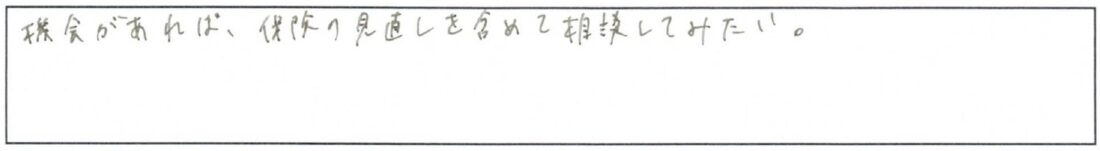 機会があれば、保険の見直しを含めて相談してみたい。